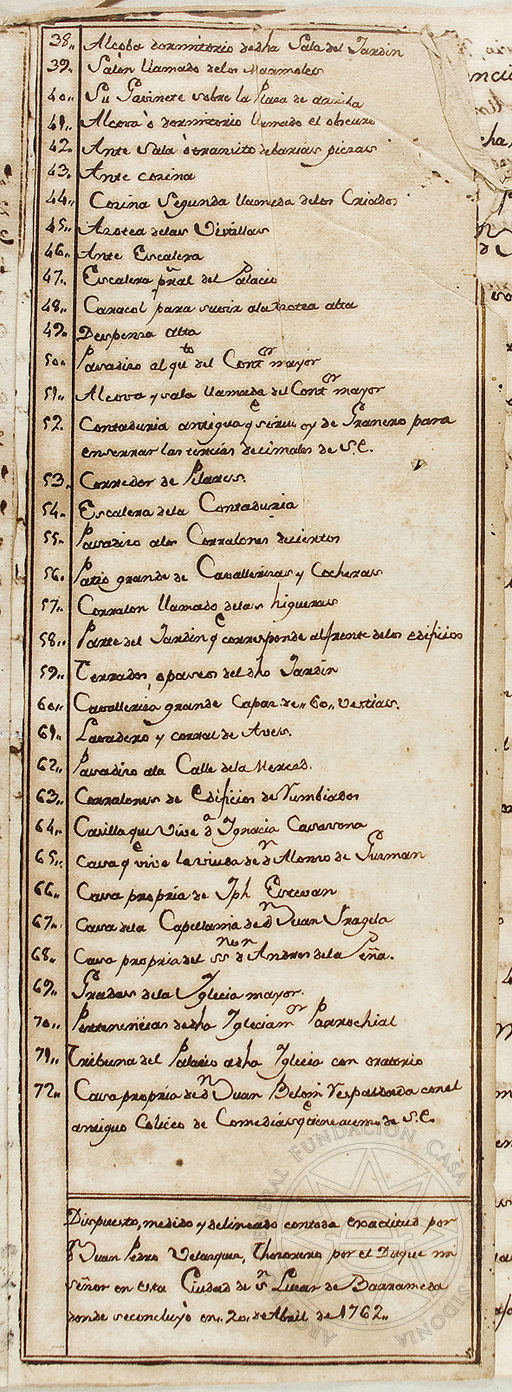 38,, Alcoba dormitorio de dha Sala del Jardin
39,, Salon llamado delos Marmoles
40,, Su Gavinete sobre la Plaza de arriba
41,, Alcova ò dormitorio llamado el obscuro
42,, Ante Sala ò transito de barias piezas
43,, Ante cocina
44,, Cocina Segunda llamada delos Criados
45,, Azotea delas
46,, Ante Escalera
47,, Escalera pral del Palacio
48,, Caracol para suvir ala azotea alta
49,, Despensa alta
50,, Pasadizo al qto del Contor mayor
51,, Alcova y sala llamada del Contor mayor
52. Contaduria antigua q sirve oy de Granero para
enserrar las tercias decimales de S.E.
53,, Corredor de Pilares.
54,, Escalera dela Contaduria
55,, Pasadizo alos Corralones
56,, Patio grande de Cavallerizas y Cocheras
57,, Corralon llamado delas higueras
58,, Parte del Jardin q corresponde al frente delos edificios
59,, Terrados, o paseos del dho Jardin
60,, Cavalleriza grande Capaz de ,,60,, vestias.
61,, Lavadero y corral de Aves.
62,, Pasadizo ala Calle dela Merced.
63,, Corralones de Edificios de
64,, Casilla que vive Da Ignacia Casasona
65,, Casa q vive la viuda de dn Alonso de Guzman
66,, Casa propria de Jph Estevan
67,, Casa dela Capellania de dn Juan Fragela
68,, Casa propria del ssnor dn Andres dela Peña.
69,, Gradas dela Yglecia mayor.
70,, Pertenencias de dha Yglecia mor Parrochial
71,, Tribuna del Palacio adha Yglecia con oratorio
72,, Casa propria de dn Juan Belom respaldada con el
antiguo Coliceo de Comedias q tiene acenso de S.E.
Dispuesto, medido y delineado contoda exactitud por
Dn Juan Pedro Velazquez, Thezorero por el Duque mi
señor en esta Ciudad de Sn Lucar de Barrameda
donde seconcluyò en ,,20,, de Abril de 1762,,
FUNDACIÓN CASA